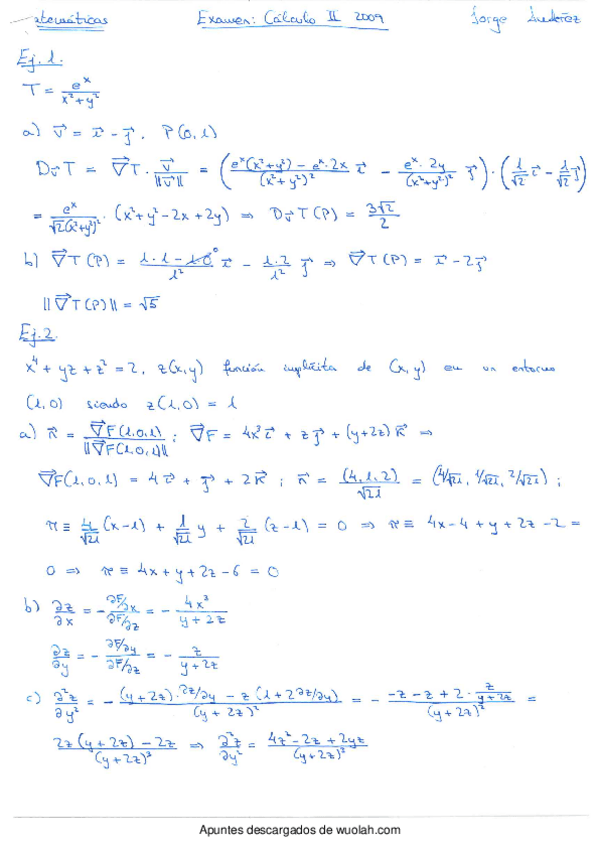 atemáticas Examen: Cálculo II 2009 Jorge
Ej. 1.
T = e^x / (x²+y²)
a) v⃗ = i⃗ - j⃗, P(0,1)
D_v⃗ T = ∇⃗T · v⃗/||v⃗|| = ( (e^x(x²+y²) - e^x·2x)/(x²+y²)² i⃗ - (e^x·2y)/(x²+y²)² j⃗ ) · ( 1/√2 i⃗ - 1/√2 j⃗ )
= e^x/(√2(x²+y²)²) · (x²+y²-2x+2y) ⇒ D_v⃗ T(P) = 3√2/2
b) ∇⃗T(P) = (1·1 - 1·0)/1² i⃗ - (1·2)/1² j⃗ ⇒ ∇⃗T(P) = i⃗ - 2j⃗
||∇⃗T(P)|| = √5
Ej. 2.
x⁴ + yz + z² = 2, z(x,y) función implícita de (x,y) en un entorno
(1,0) siendo z(1,0) = 1
a) n⃗ = ∇⃗F(1,0,1)/||∇⃗F(1,0,1)|| ; ∇⃗F = 4x³ i⃗ + z j⃗ + (y+2z) k⃗ ⇒
∇⃗F(1,0,1) = 4i⃗ + j⃗ + 2k⃗ ; n⃗ = (4,1,2)/√21 = (4/√21, 1/√21, 2/√21) ;
π ≡ 4/√21 (x-1) + 1/√21 y + 2/√21 (z-1) = 0 ⇒ π ≡ 4x-4+y+2z-2 =
0 ⇒ π ≡ 4x+y+2z-6 = 0
b) ∂z/∂x = - (∂F/∂x)/(∂F/∂z) = - 4x³/(y+2z)
∂z/∂y = - (∂F/∂y)/(∂F/∂z) = - z/(y+2z)
c) ∂²z/∂y² = - ((y+2z)·∂z/∂y - z(1+2∂z/∂y))/(y+2z)² = - (-z-z+2·z/(y+2z))/(y+2z)² =
(2z(y+2z)-2z)/(y+2z)³ ⇒ ∂²z/∂y² = (4z²-2z+2yz)/(y+2z)³
Apuntes descargados de wuolah.com